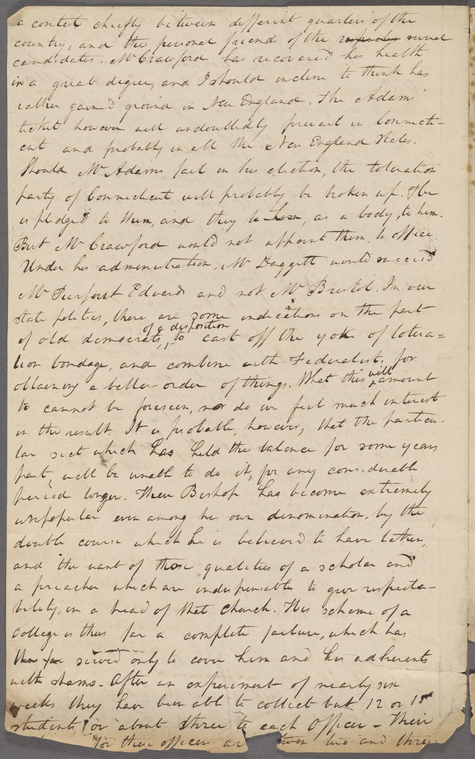 a contest chiefly between different quarters of the
country, and the personal friends of the several
candidates. Mr Crawford has recovered his health
in a great degree, and I should incline to think has
rather gained ground in New England. The Adams
ticket however will undoubtedly prevail in Connecti-
cut and probably in all the New England States.
Should Mr Adams fail in his election, the toleration
party of Connecticut will probably be broken up. He
is pledged to them, and they to him, as a body, to him.
But Mr Crawford would not appoint them to office.
Under his administration, Mr Daggett would succeed
Mr Pierpont Edwards and not Mr Bristol. In our
state politics, there are some indications on the part
of old democrats, of a disposition to cast off the yoke of tolera-
tion bondage, and combine with Federalists, for
obtaining a better order of things. What this will amount
to cannot be foreseen, nor do we feel much interest
in the result. It is probable, however, that the particu-
lar sect which has held the balance for some years
past, will be unable to do it, for any considerable
period longer. Their Bishop has become extremely
unpopular even among his own denomination, by the
double course which he is believed to have taken,
and the want of those qualities of a scholar and
a preacher which are indispensable to give respecta-
bility, in a head of that church. His scheme of a
College is thus far a complete failure, which has
served only to cover him and his adherents
with shame. After an experiment of nearly six
weeks they have been able to collect but 12 or 15
students, or about three to each officer - Their
for these officers are two and three